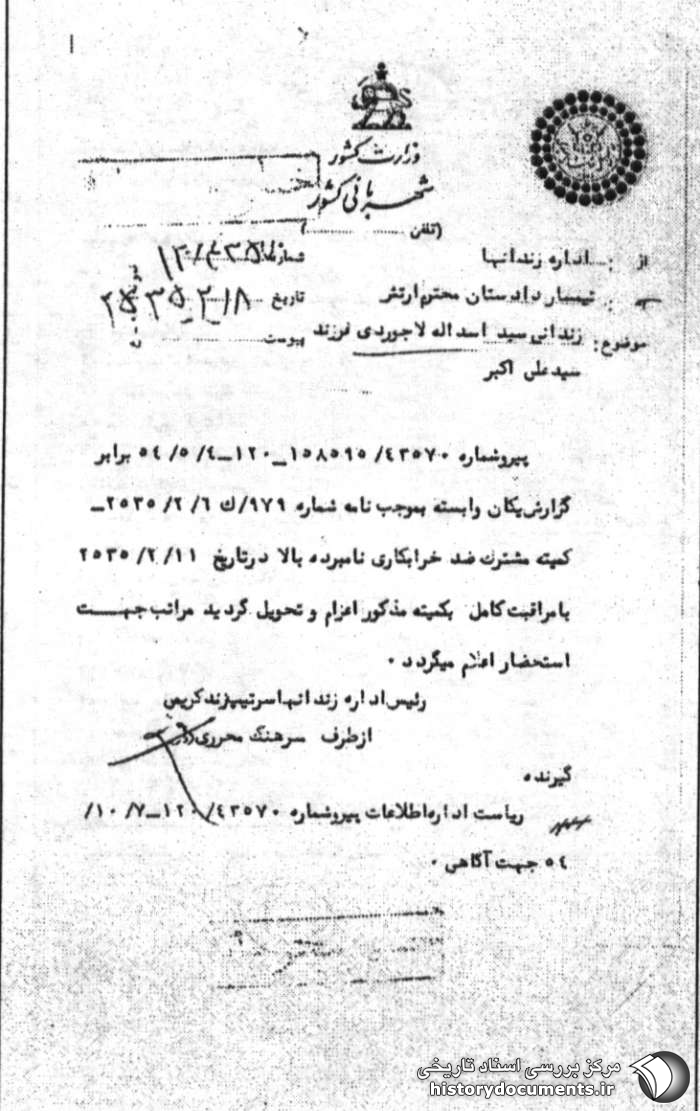 وزارت کشور
شهربانی کشور
(تلفن ............)
از : اداره زندانها
شماره
به : تیمسار دادستان محترم ارتش
تاریخ
موضوع: زندانی سید اسداله لاجوردی فرزند
پیوست
سید علی اکبر
پیروشماره ۴۳۵۷۰/ ۱۵۸۵۹۵_۱۲۰_۵۴/۵/۴ برابر
گزارش یکان وابسته بموجب نامه شماره ۹۷۹/ک ۶/ ۲/ ۲۵۳۵_
کمیته مشترک ضد خرابکاری نامبرده بالا در تاریخ ۱۱/ ۲/ ۲۵۳۵
با مراقبت کامل بکمیته مذکور اعزام و تحویل گردید مراتب جهت
استحضار اعلام میگردد ۰
رئیس اداره زندانها سرتیپ زند کریمی
از طرف سرهنگ محرری
گیرنده
ریاست اداره اطلاعات پیروشماره ۴۳۵۷۰/ ۱۲۰_۷/ ۱۰/
۵۴ جهت آگاهی ۰
مرکز بررسی اسناد تاریخی
historydocuments.ir